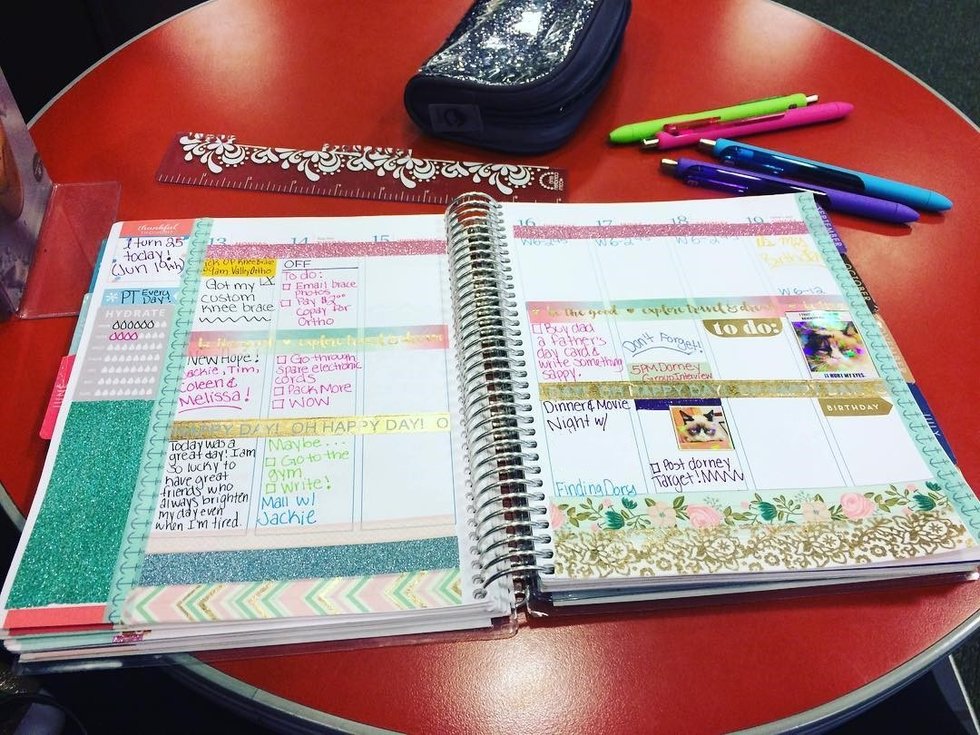 thankful
I turn 25
today!
(Jun 19th)
PT Every
Day!
HYDRATE
13
9am Valley Ortho
Got my
custom
Knee brace
New Hope!
Jackie, Tim,
Coleen &
Melissa!
Today was a
great day! I am
so lucky to
have great
friends who
always brighten
my day even
when I'm tired.
14
OFF
To do:
Email brace
photos
Pay $2.00
Copay for
Ortho
Go through
spare electronic
cords
Pack More
WOW
Maybe...
Go to the
gym
Write!
Mall w/
Jackie
15
be the good ♥ explore travel & dream
HAPPY DAY! OH HAPPY DAY! O
16
W6-2
Buy dad
a father's
day card &
write something
sappy!
Dinner & Movie
Night w/
Finding Dory
17
W6-2
Don't Forget!
5PM Dorney
Group Interview
Post dorney
Target!
18
W6-2
to do:
19
It's my
Birthday
W6-12
IT HURT MY EYES.
BIRTHDAY
be the good ♥ explore travel & dream
OCTOBER